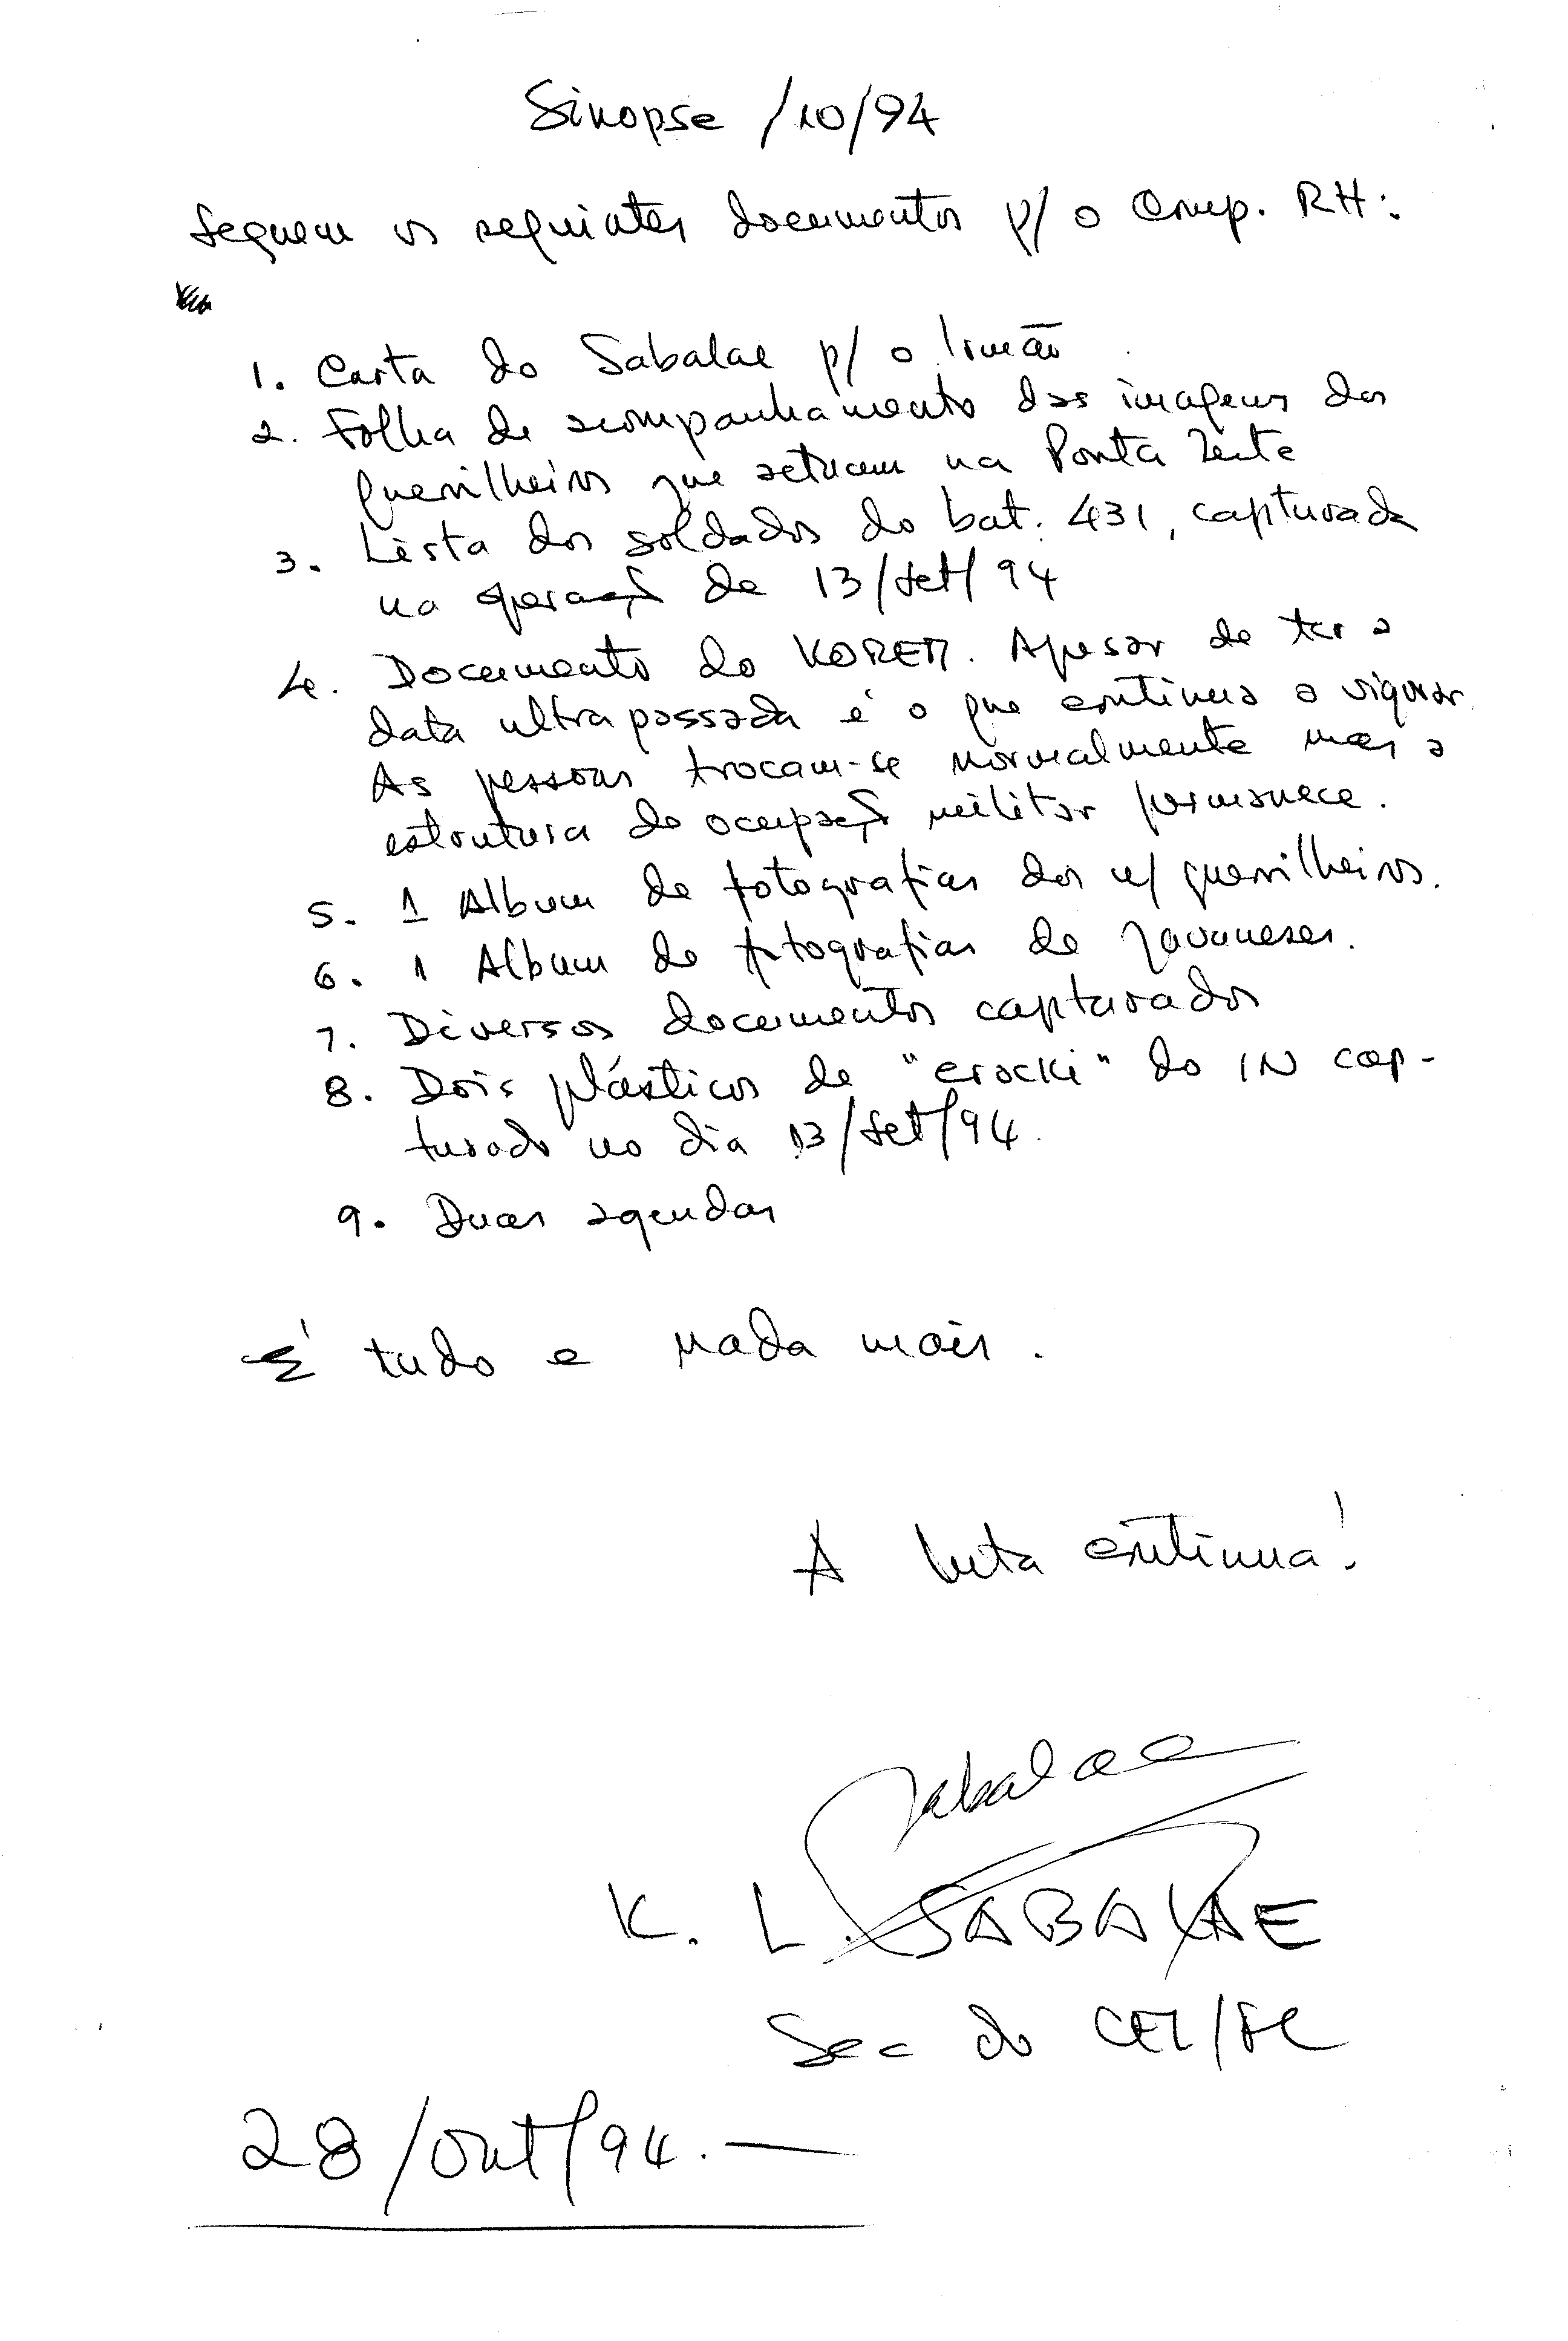 Sinopse /10/94
Seguem os seguintes documentos p/ o Comp. RH:
1. Carta do Sabalae p/ o Irmão
2. Folha de acompanhamento das imagens dos
guerrilheiros que actuam na Ponta Leste
3. Lista dos soldados do bat. 431, capturada
na operação de 13/Set/94
4. Documento do KOREM. Apesar de ter a
data ultrapassada é o que continua a vigorar.
As pessoas trocam-se normalmente mas a
estrutura de ocupação militar permanece.
5. 1 Album de fotografias dos n/ guerrilheiros.
6. 1 Album de fotografias de javaneses.
7. Diversos documentos capturados
8. Dois plásticos de "crocki" do IN cap-
turado no dia 13/Set/94.
9. Duas agendas
É tudo e nada mais.
A luta continua!
Sabalae
K. L. SABALAE
Sec do
28/Out/94.—